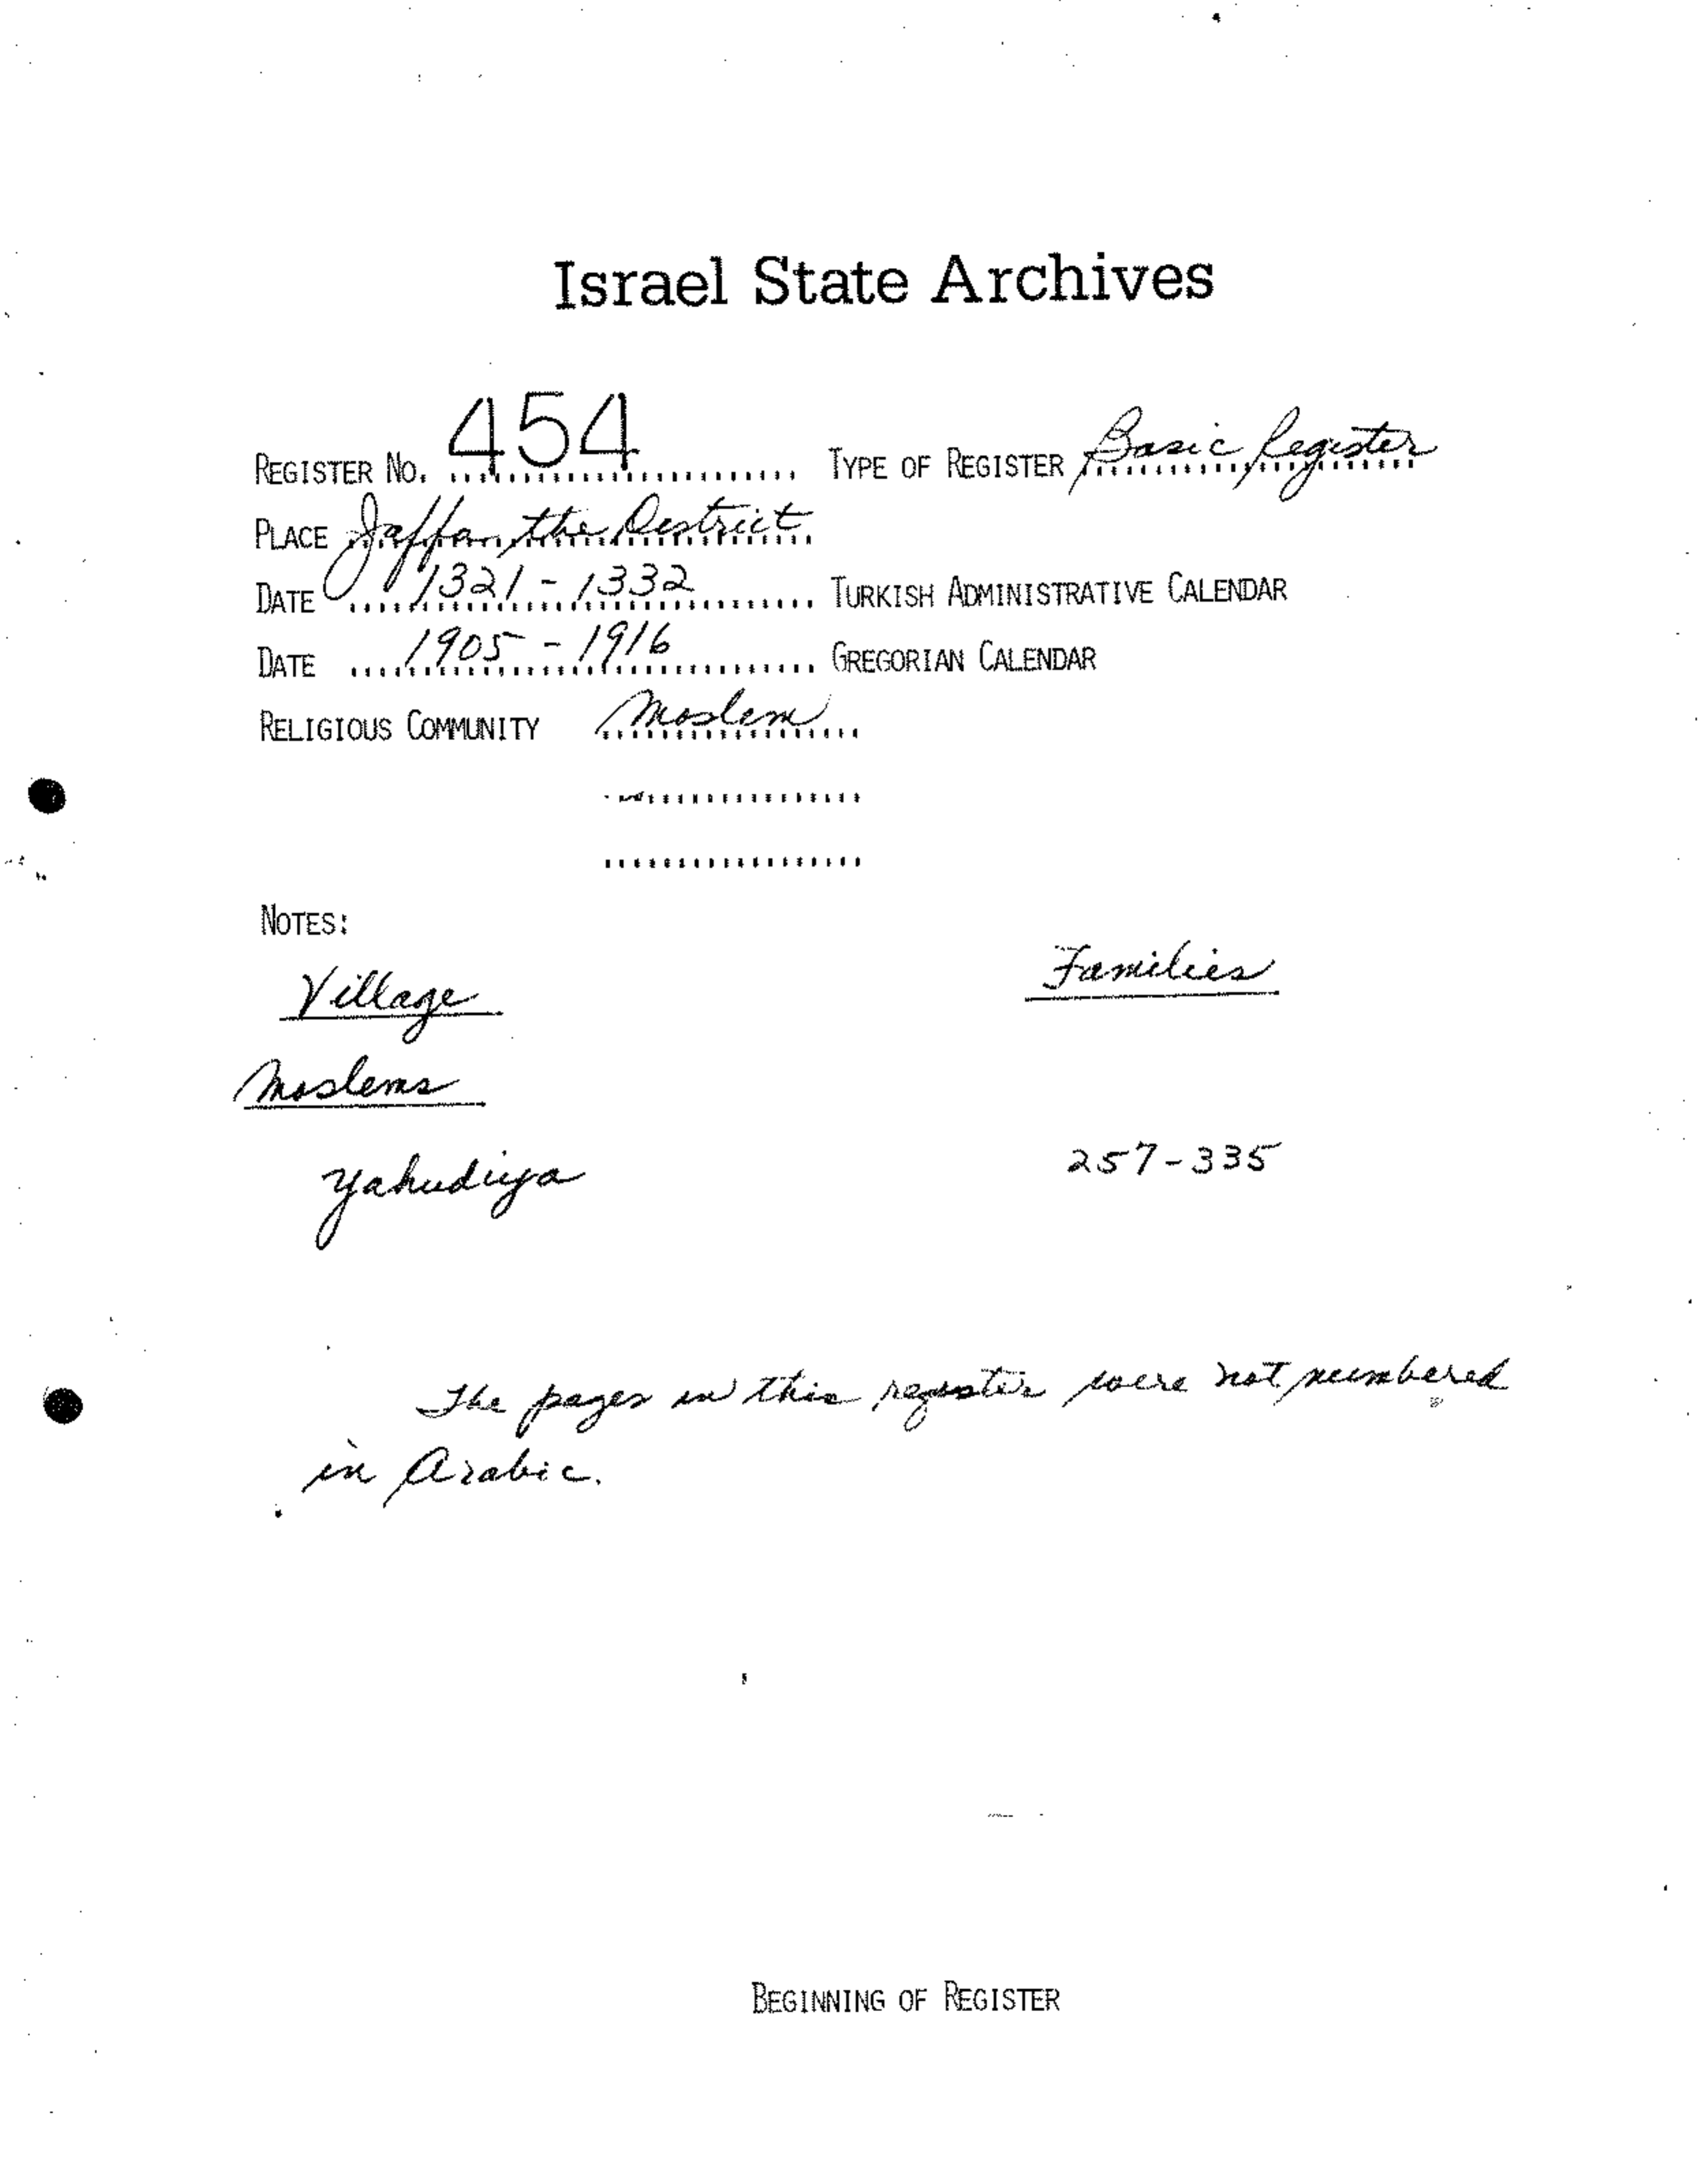 Israel State Archives
REGISTER NO. 454 TYPE OF REGISTER Basic Register
PLACE Jaffa, the District
DATE 1321 - 1332 TURKISH ADMINISTRATIVE CALENDAR
DATE 1905 - 1916 GREGORIAN CALENDAR
RELIGIOUS COMMUNITY Moslem
NOTES:
Village Families
Moslems
Yahudiya 257-335
The pages in this register were not numbered
in Arabic.
BEGINNING OF REGISTER